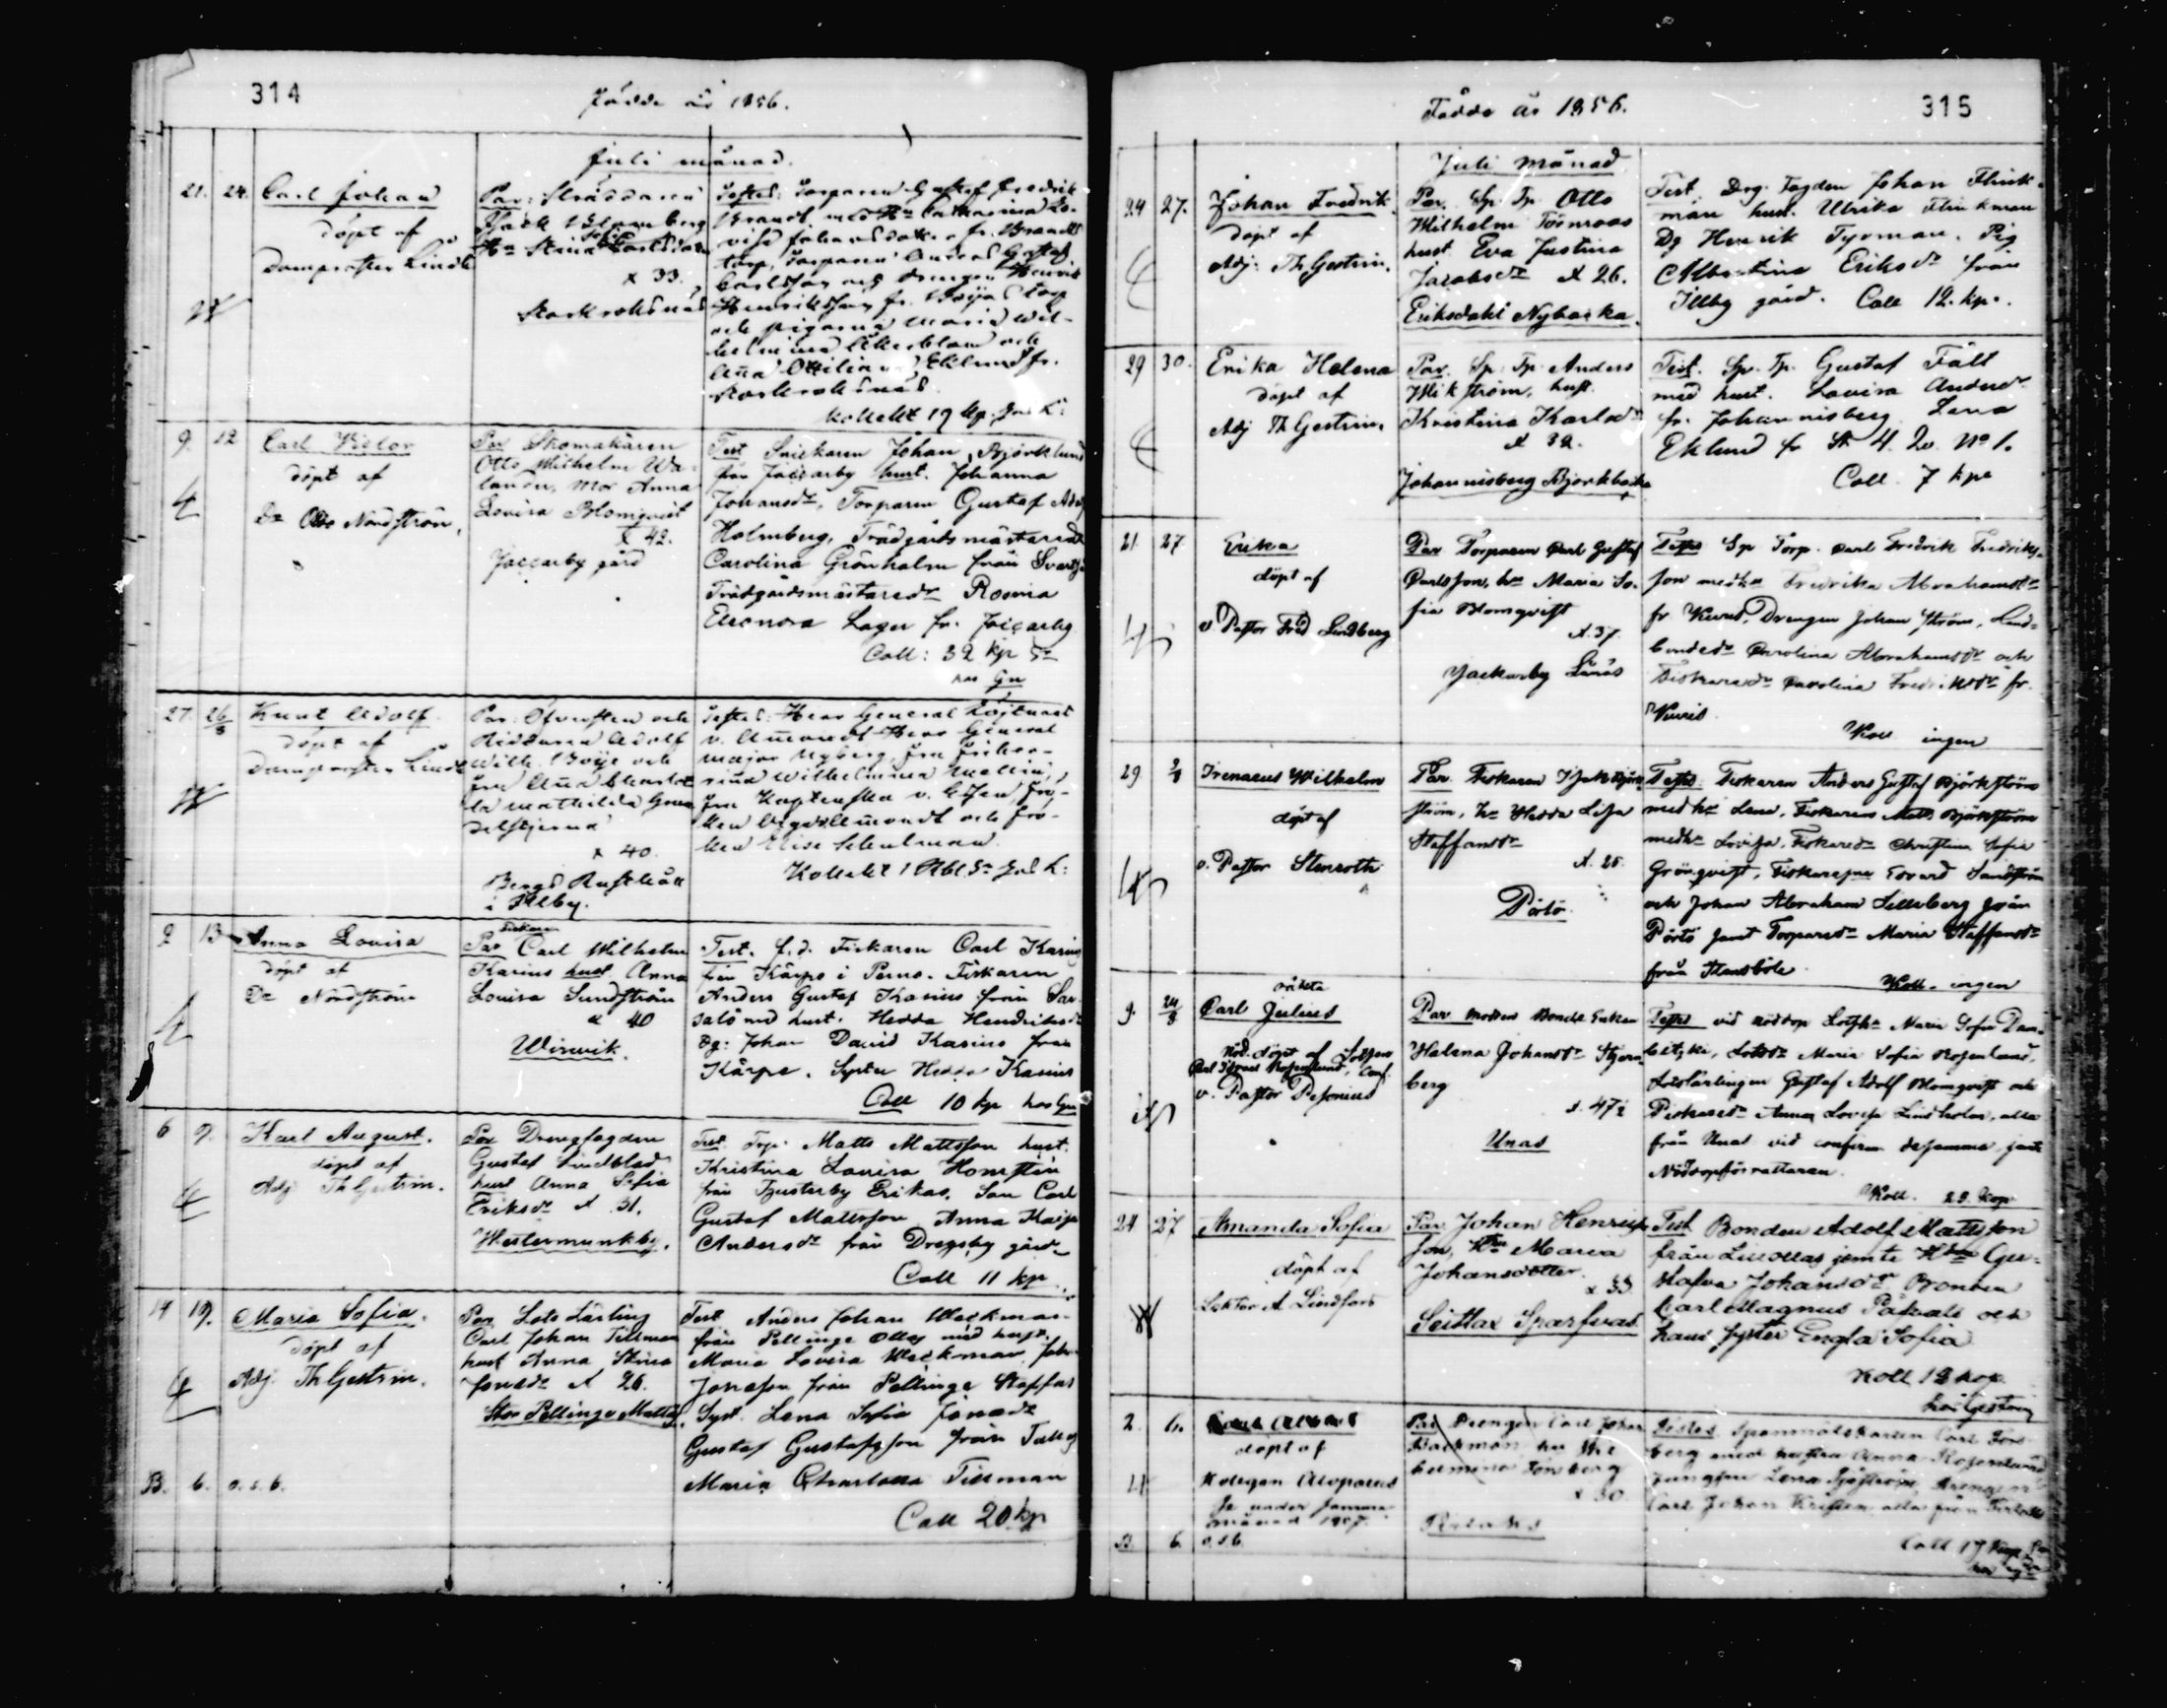 314
Födde år 1856.
Juli månad.
21. 24. Carl Johan
döpt af
Domprosten Lindh
Par: Skräddaren
Jack Blomberg
Hu Stina Sofia Carlsdotter
x 33.
Starkroksnäs
Testes: Torparen Gustaf Fredrik
Brandt med Hu Catharina Lo-
visa Johansdotter fr. Brandts
torp, Torparen Anders Gustaf
Carlsson och drengen Henrik
Henriksson fr. Böijas torp
och pigorna Maria Wil-
helmina Åkerblom och
Anna Ottilia Eklund fr.
Starkroksnäs.
Kollekt 19 kp.
9. 12 Carl Victor
döpt af
Dn Otto Nordström,
Par Skomakaren
Otto Wilhelm Wa-
lander, Mor Anna
Lovisa Blomqvist
x 42.
Jackarby gård
Test Snickaren Johan Björklund
från Jackarby hust. Johanna
Johansdr, Torparen Gustaf Adolf
Holmberg, Trädgårdsmästared
Carolina Grönholm från Svartså
Trädgårdsmästaredr Rosina
Eleonora Lager fr. Jackarby
Coll: 32 kp Sr
hos Gn
27. 26/8 Knut Adolf
döpt af
Domprosten Lindh
Par: Öfversten och
Riddaren Adolf
Wilh. Böije och
fru Anna Charlot-
ta Mathilda Gyl-
delstjerna
x 40.
Bergs Rusthåll
i Illby.
Testes: Herr General Löjtnant
v. Amondt Herr General
major Nyberg, fru Friher-
rinna Wilhelmina Mellin,
fru Kaptenska v. Essen frö-
ken v. Amondt och frö-
ken Elise Schulman
Kollekt 1 Rbl Sr
9 13 Anna Lovisa
döpt af
Dn Nordström
Par Fiskaren Carl Wilhelm
Karius hust Anna
Lovisa Sundström
x 40
Wirwik.
Test. f.d. Fiskaren Carl Karius
från Kärpe i Perno. Fiskaren
Anders Gustaf Karius från Sar-
salö med hust. Hedda Hendriksdr
Dg: Johan David Karius från
Kärpe. Syster Hedda Karius
Coll 10 kp hos Gn
6 9. Karl August.
döpt af
Adj Th Gestrin.
Par Drengfogden
Gustaf Lindblad
hust Anna Sofia
Eriksdr x 31.
Westermunkby.
Test. Trp. Matts Mattsson hust.
Kristina Lovisa Hornstén
från Tjusterby Erikas. Son Carl
Gustaf Mattsson Anna Kaisa
Andersdr från Dregsby gård
Coll 11 kp
14 19. Maria Sofia.
döpt af
Adj. Th Gestrin.
Par Lots Lärling
Carl Johan Tillman
hust Anna Stina
Jonasdr x 26.
Stor Pellinge Mattas.
Test Anders Johan Weckman
från Pellinge Ollas med hust.
Maria Lovisa Weckman, Joh.
Jonasson från Pellinge Staffas
Syst. Lena Sofia Jonasdr
Gustaf Gustafsson från
Maria Charlotta Tillman
Coll 20 kp
B. 6. o.s.b.
315
Födde år 1856.
Juli Månad
24 27. Johan Fredrik.
döpt af
Adj: Th Gestrin.
Par. Sp. Tp. Otto
Wilhelm Törnroos
hust. Eva Justina
Jacobsdr x 26.
Eriksdahl Nybacka.
Test. Drg. Fogden Johan Flink-
man hust. Ulrika Flinkman
Dg Henrik Tyrman. Pig
Albertina Eriksdr från
Illby gård. Coll 12 kp.
29 30. Erika Helena
döpt af
Adj Th Gestrin.
Par. Sp: Tp: Anders
Wikström, hust.
Kristina Karlsdr
x 32.
Johannisberg Björkbacka
Test. Sp. Tp. Gustaf Fält
med hust. Lovisa Andersdr
fr. Johannisberg Lena
Eklund fr St 4. Qv. No 1.
Coll. 7 kpe
21. 27. Erika
döpt af
v. Pastor Fred Lindberg
Par Torparen Carl Gustaf
Carlsson, hu Maria So-
fia Blomqvist
x 37.
Jackarby Lönäs
Testes Sp Torp. Carl Fredrik Fredriks-
son med hu Fredrika Abrahamsdr
fr Kuris, Drengen Johan Ström, Land-
bondedr Carolina Abrahamsdr och
Fiskaredr Carolina Fredriksdr fr.
Kuris
Koll ingen
29 3/8 Irenaeus Wilhelm
döpt af
v. Pastor Stenroth
Par. Fiskaren Isak Björk-
ström, hu Hedda Lisa
Staffansdr
x. 25.
Pörtö.
Testes: Fiskaren Anders Gustaf Björkström
med hu Lena, Fiskaren Matts Björkström
med hu Lovisa, Fiskaredr Christina Sofia
Grönqvist, Fiskaresone Edvard Sandström
och Johan Abraham Lilleberg från
Pörtö samt Torparedr Maria Staffansdr
från Stensböle.
Koll. ingen
9. 24/8 oäkta
Carl Julius
Nöd. döpt af Lotsen
Carl Israel Rosenlund, Conf.
v. Pastor Pesonius
Par Modren Bonde Enkan
Helena Johansdr Stjern-
berg
x. 47½
Unas
Testes vid nöddop Lotshu Maria Sofia Dam-
bitzki, Lotsdr Maria Sofia Rosenlund,
Lotslärlingen Gustaf Adolf Blomqvist och
Fiskaredr Anna Lovisa Lindholm, alla
från Unas vid confirm. desamma, jemte
Nöddopförrättaren.
Koll. 29. kop
24 27 Amanda Sofia
döpt af
Lektor A Lindfors
Par Johan Henriks-
son, Hu Maria
Johansdotter.
x 33
Seitlax Sparfvas
Test Bonden Adolf Mattsson
från Lillollas jemte Hu Gu-
stafva Johansdr Bonden
Carl Magnus och
hans syster Engla Sofia
Koll 12 kop
hos Gestrin
2. 6.
döpt af
Kollegan Alopaeus
Se under Januari
månad 1857.
Par Drengen Carl Johan
Backman hu Wil-
helmina Lönnberg
x 30.
Testes Spanmålskarlen Carl Fors-
berg med hustru Anna Rosenlund
Jungfru Lena Sjöström, Drengen
Carl Johan alla från
Coll 17 kop
B. 6. o.s.b.